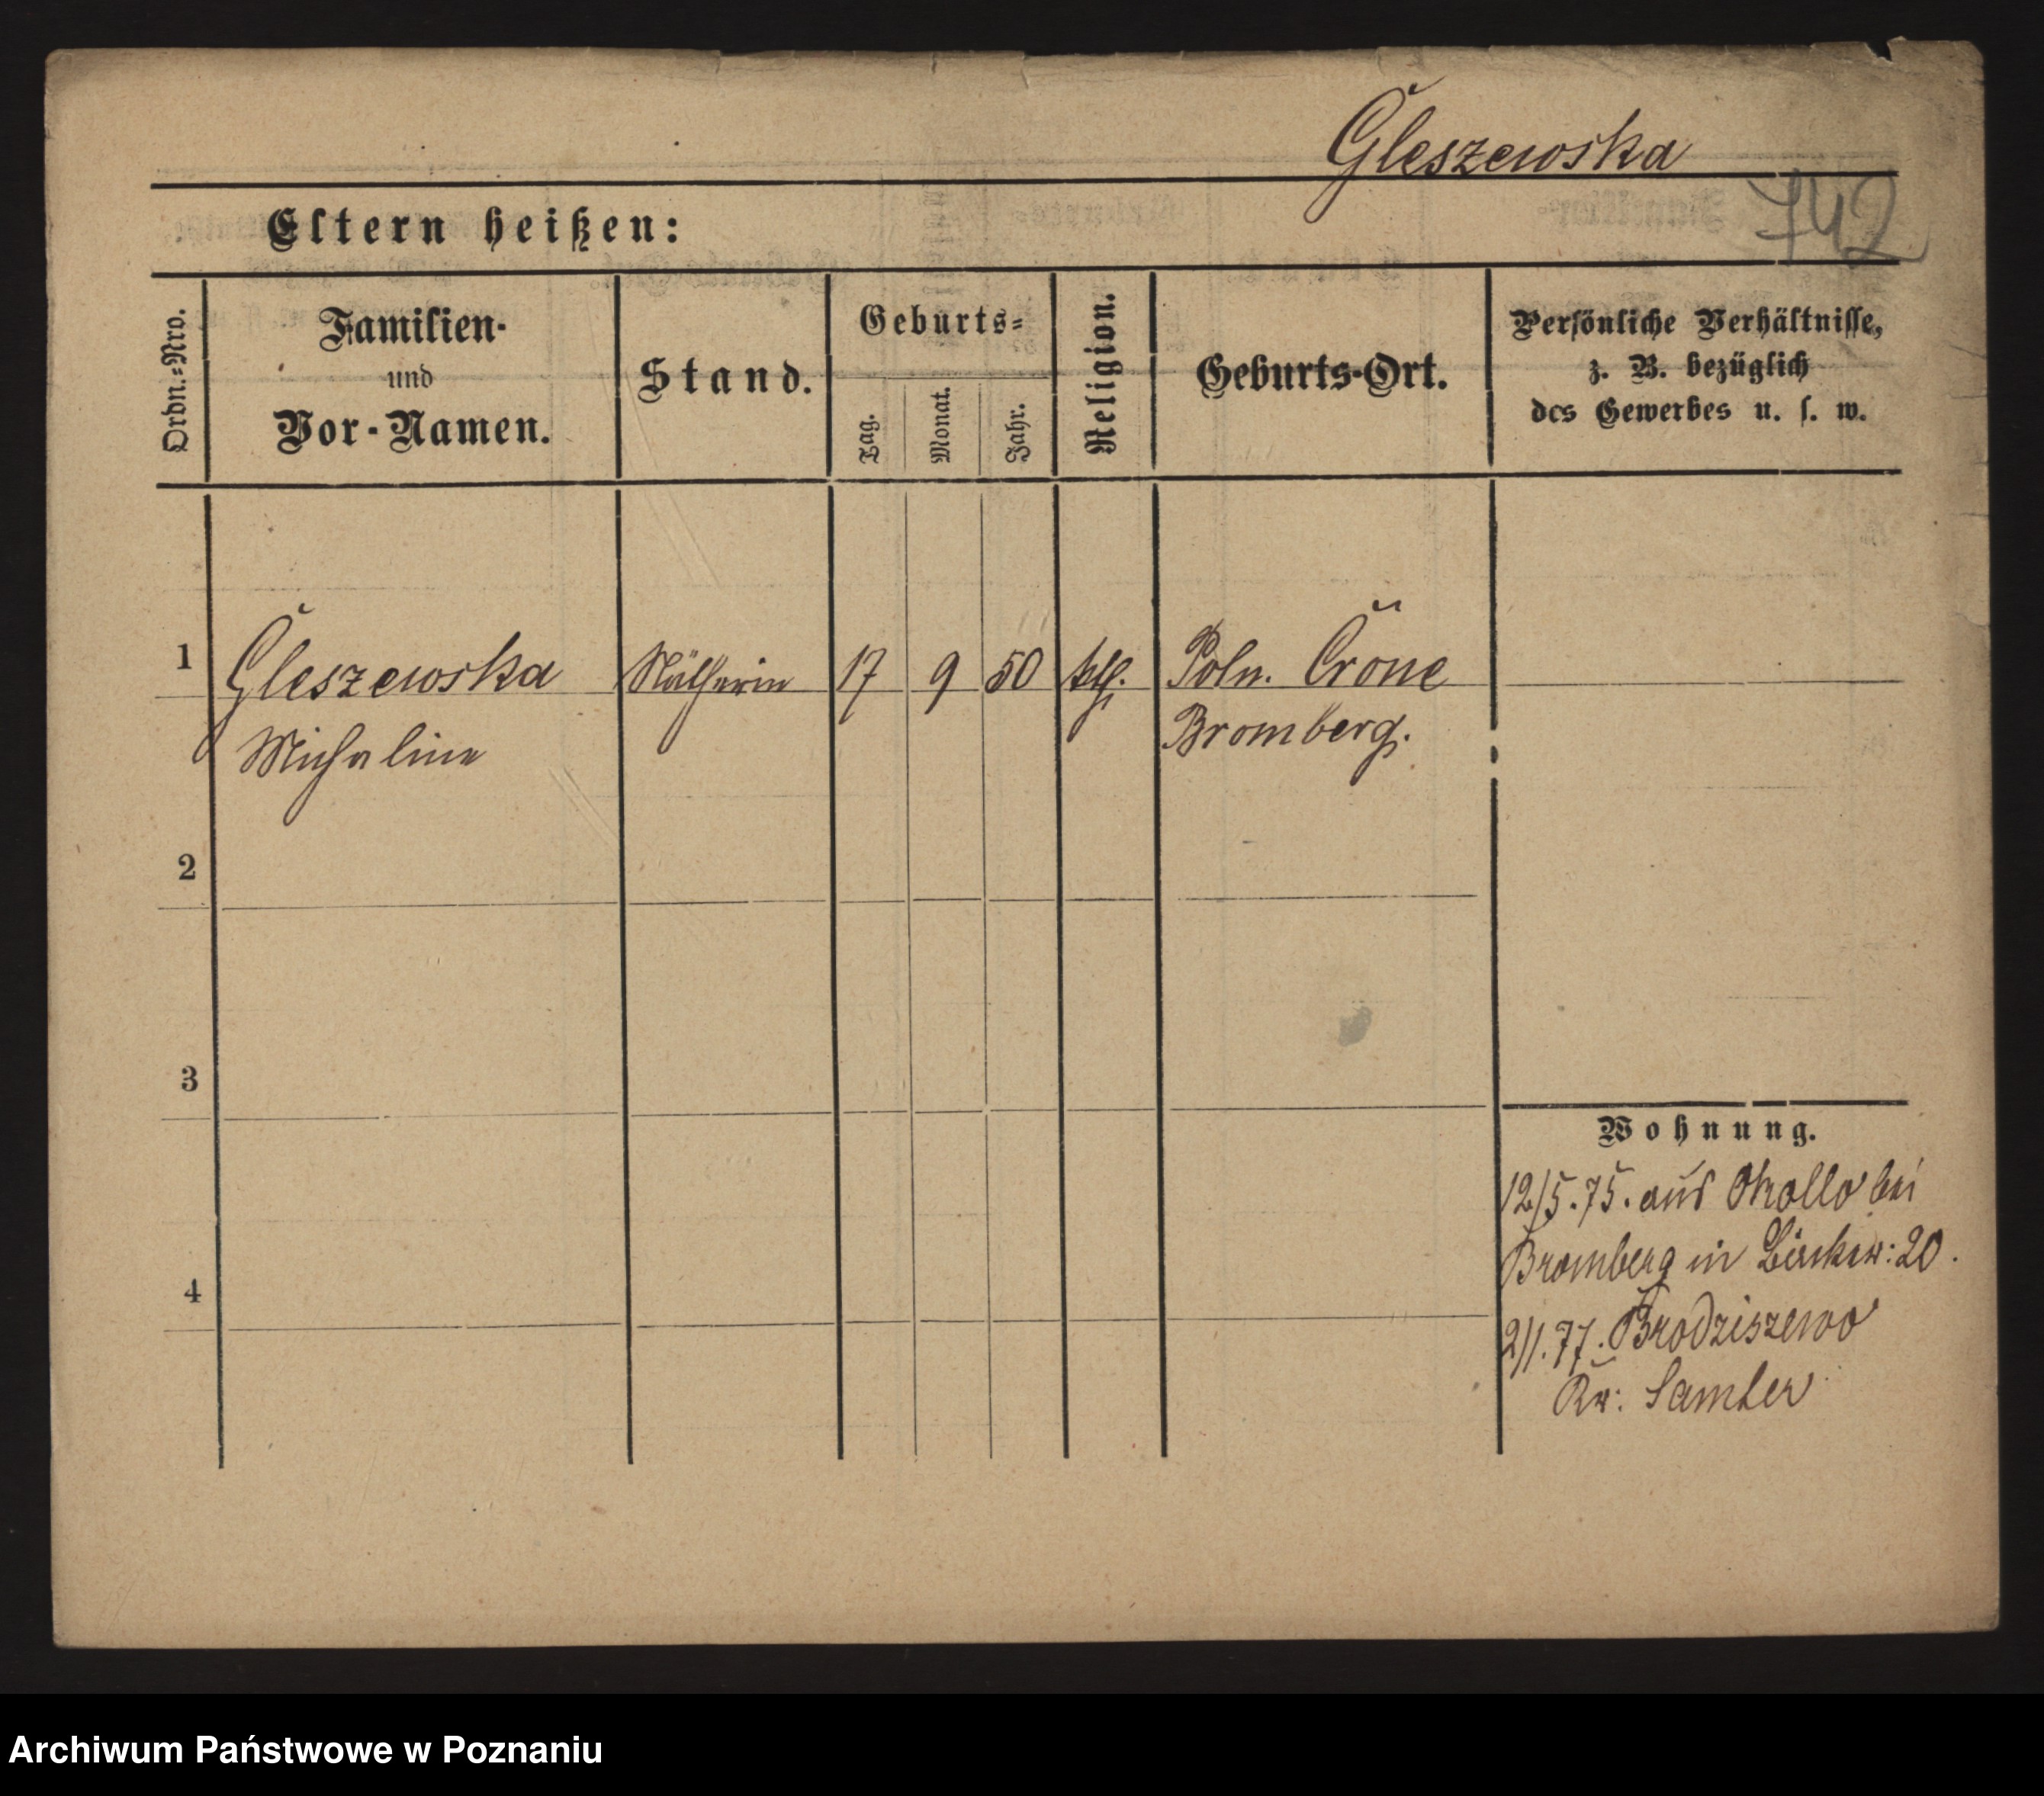 Gleszewska
742
Eltern heißen:
Ordn.=Nro.
Familien-
und
Vor-Namen.
Stand.
Geburts=
Tag.
Monat.
Jahr.
Religion.
Geburts-Ort.
Persönliche Verhältnisse,
z. B. bezüglich
des Gewerbes u. s. w.
1 Gleszewska Nätherin 17 9 50 kth. Poln. Crone
Michaline Bromberg.
2
3
4
Wohnung.
12/5.75. aus Okollo bei
Bromberg in :20.
2/1.77. Brodziszewo
Kr: Samter
Archiwum Państwowe w Poznaniu